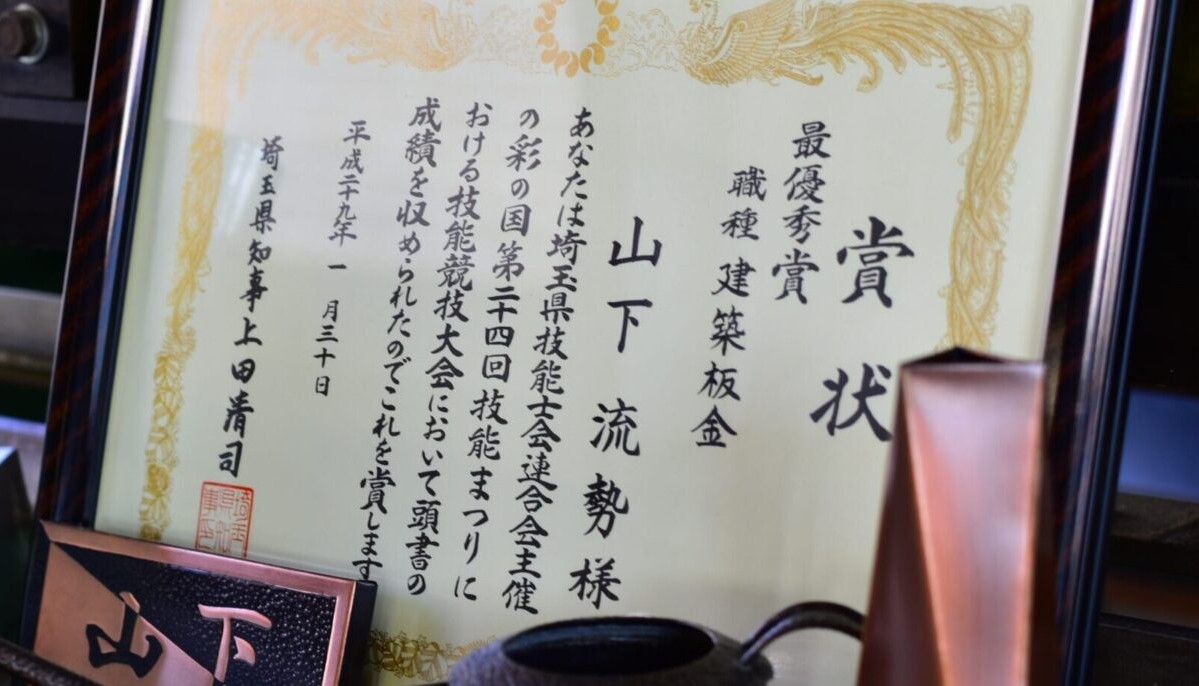 賞状
最優秀賞
職種 建築板金
山下流勢様
あなたは埼玉県技能士会連合会主催
の彩の国第二十四回技能まつりに
おける技能競技大会において頭書の
成績を収められたのでこれを賞します
平成二十九年一月三十日
埼玉県知事上田清司
山下